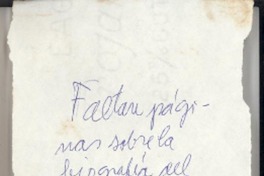 Faltan pági-
nas sobre la
biografía del